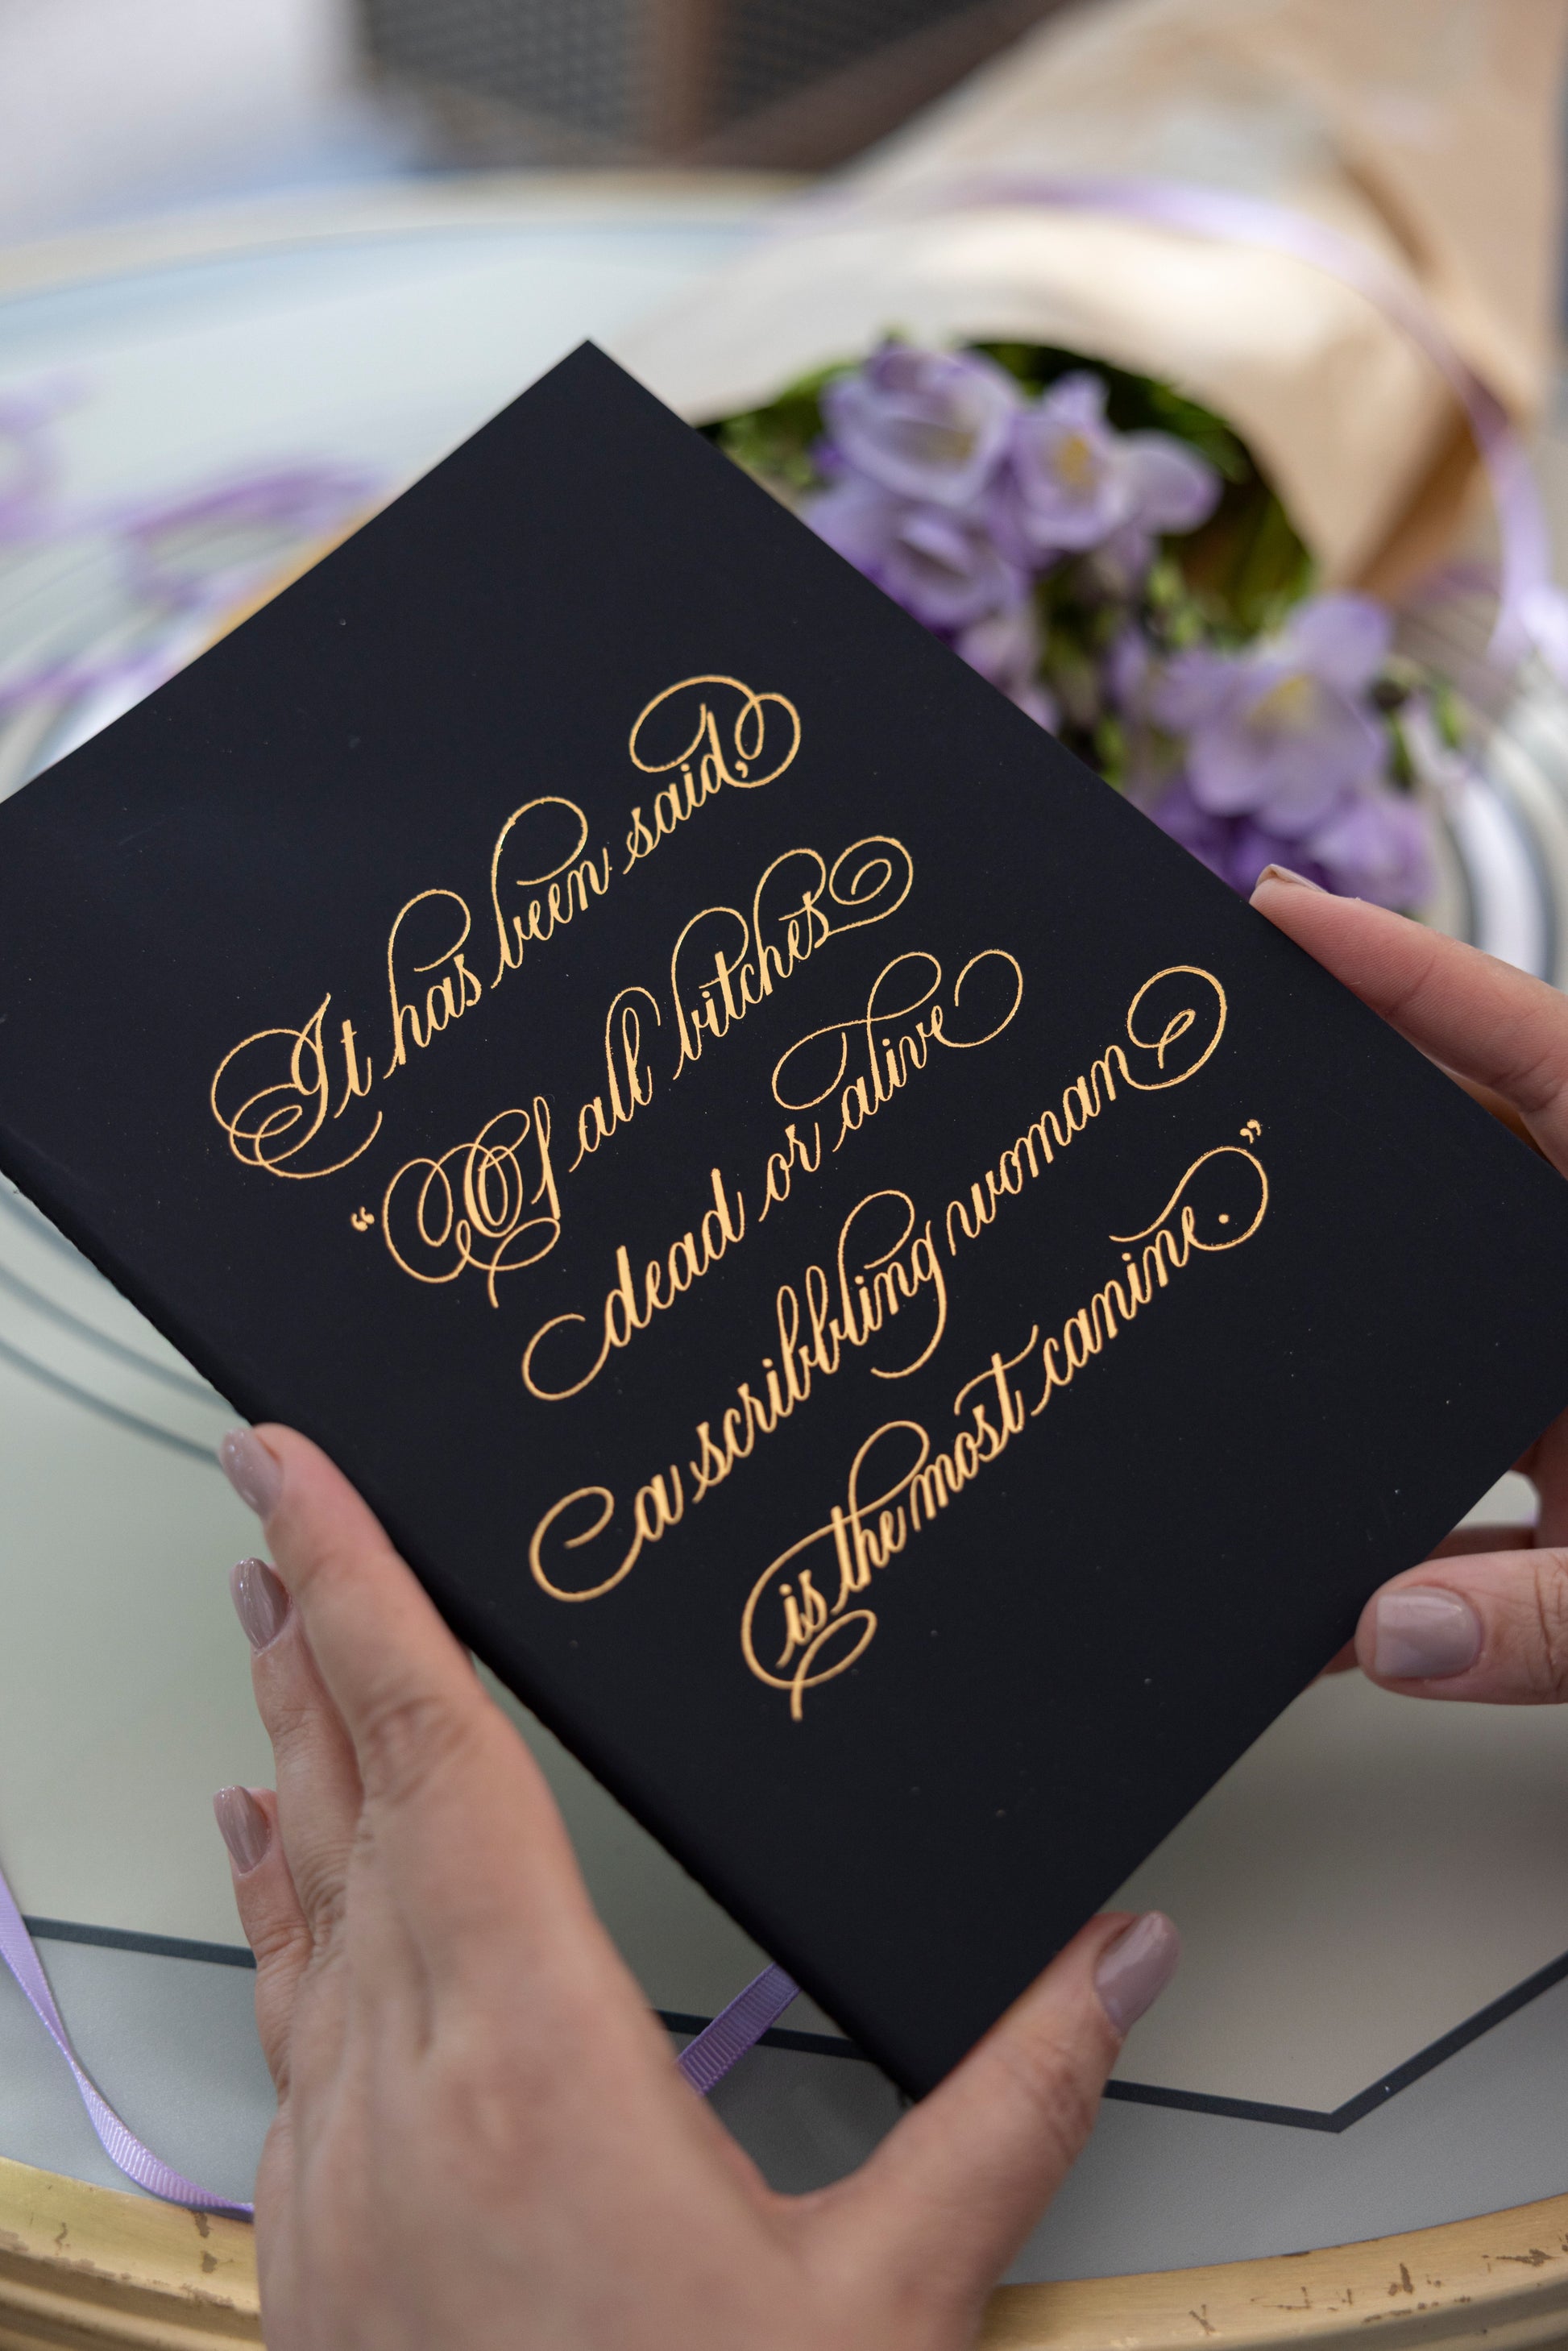 It has been said,
“Of all bitches
dead or alive
a scribbling woman
is the most canine.”